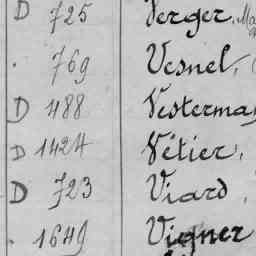 D 725 Verger,
. 769 Vesnel,
D 488 Vesterma
D 1424 Vétier,
D 723 Viard,
. 1649 Vigner